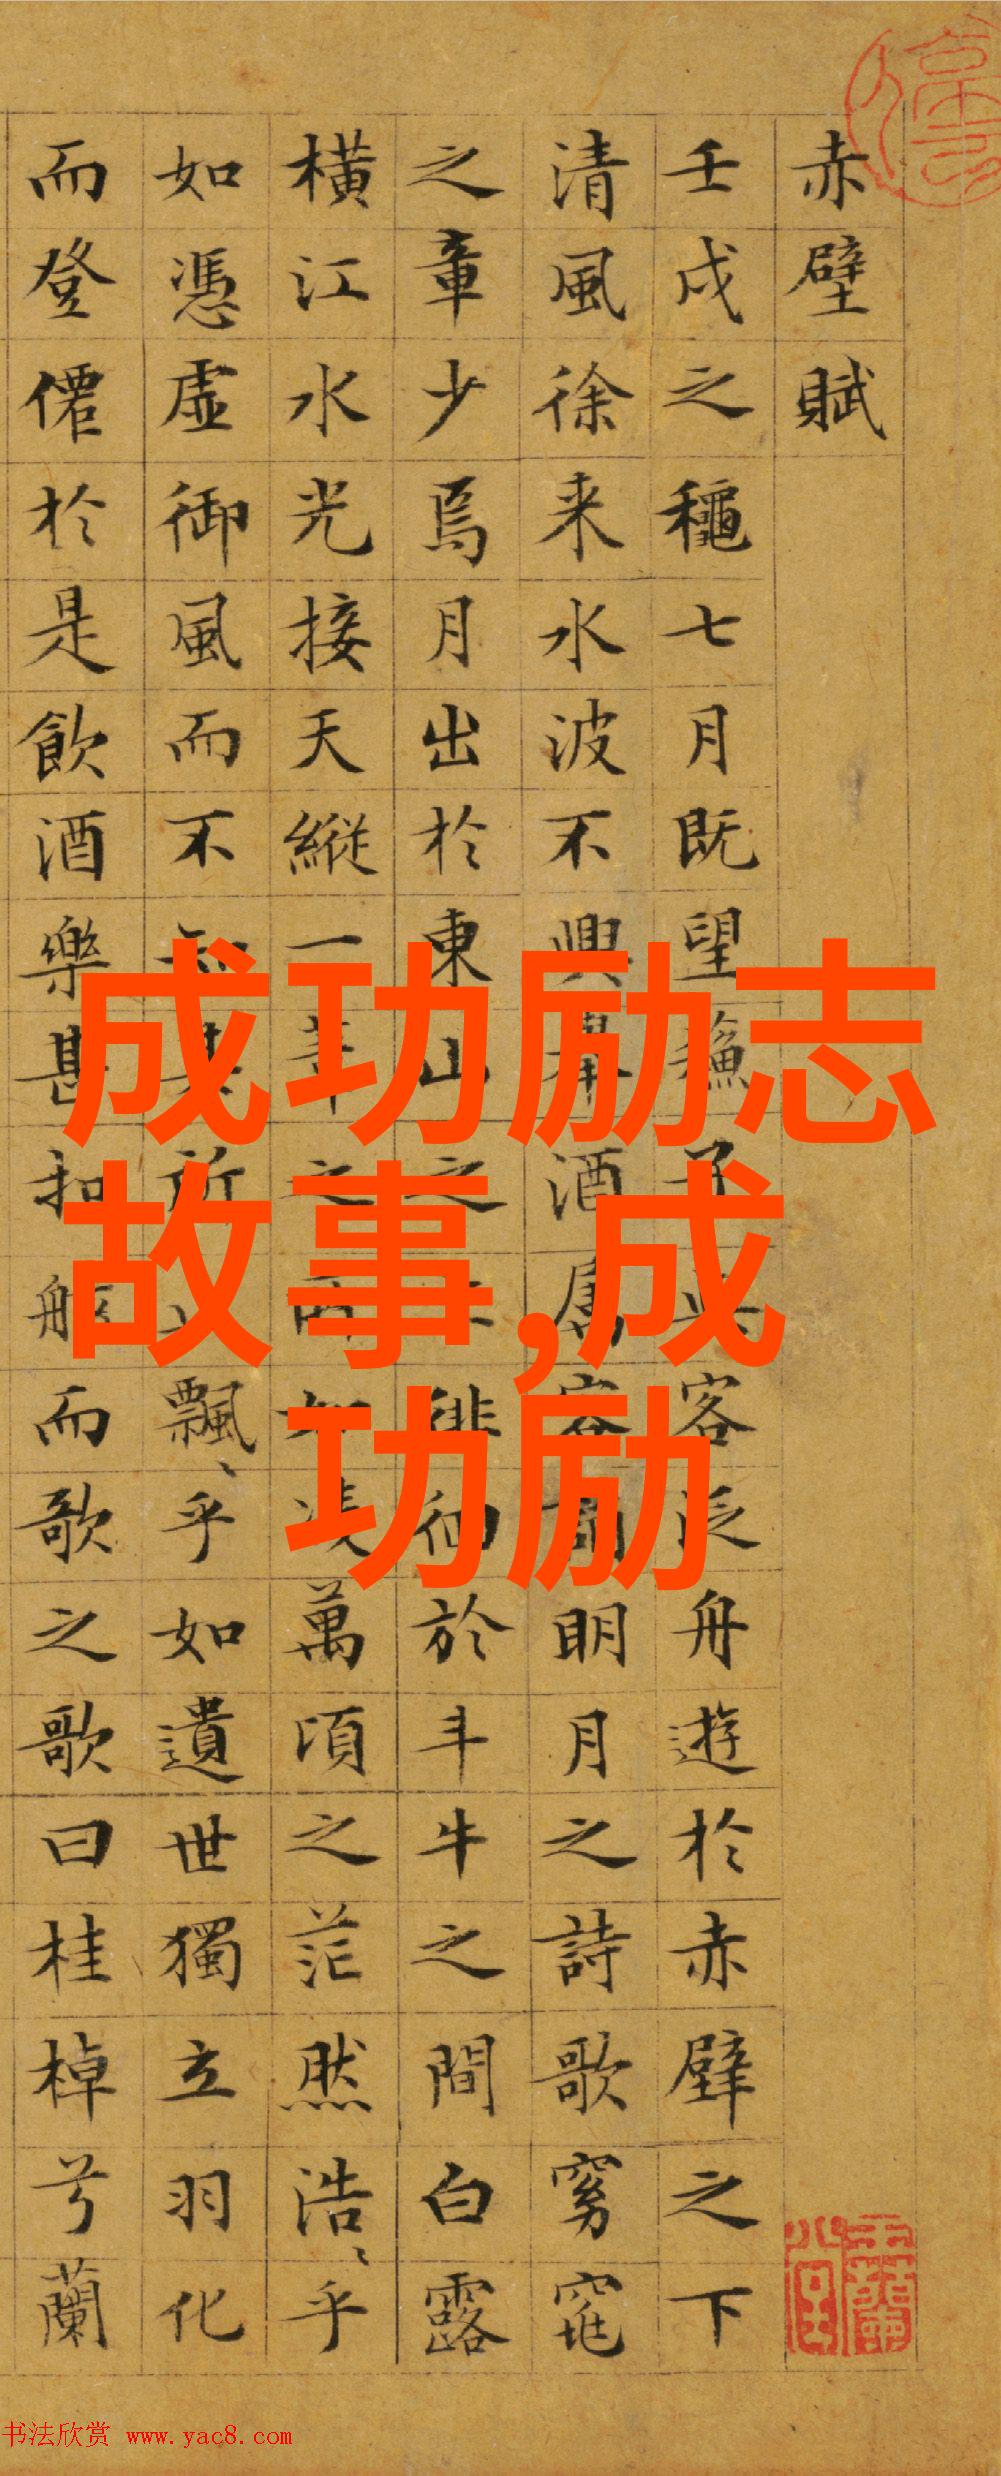 赤壁賦
壬戌之穐七月既望蘓子與客泛舟遊於赤壁之下
清風徐来水波不興舉酒屬客誦明月之詩歌窈窕
之章少焉月出於東山之上徘徊於斗牛之間白露
橫江水光接天縱一葦之所如凌萬頃之茫然浩〻乎
如憑虛御風而不知其所止飄〻乎如遺世獨立羽化
而登僊於是飲酒樂甚扣舷而歌之歌曰桂棹兮蘭
成功励志
故事,成
功励
书法欣赏 www.yac8.com